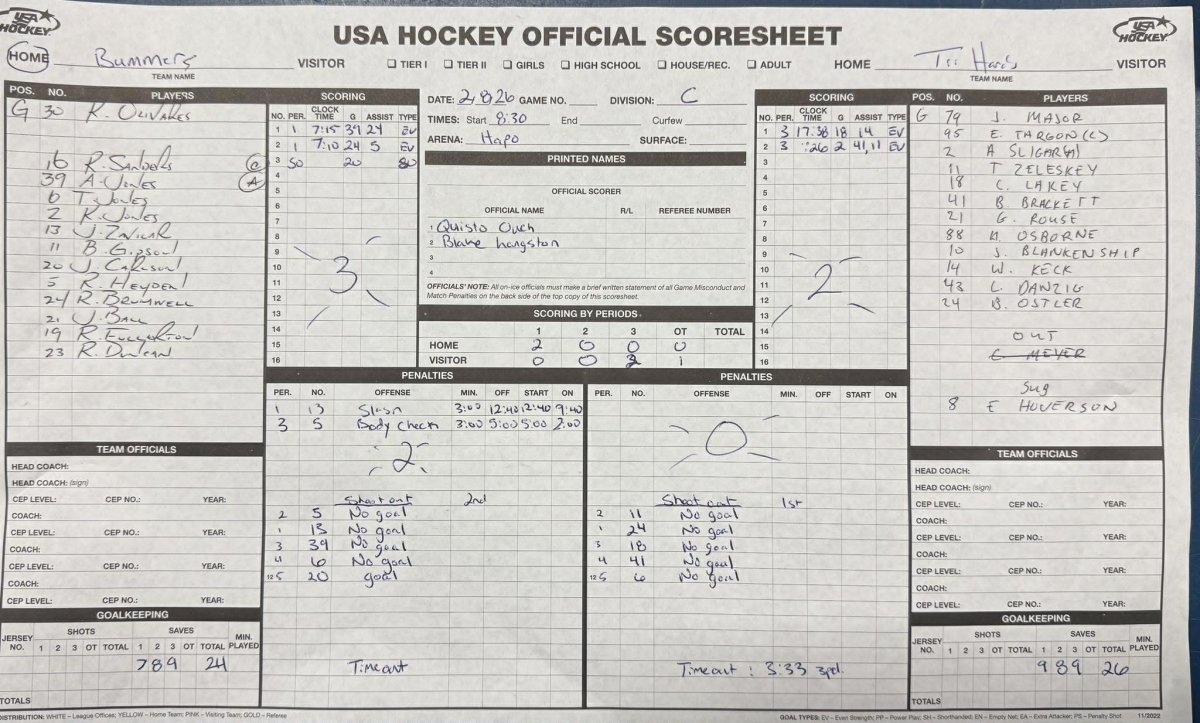 USA HOCKEY
USA HOCKEY OFFICIAL SCORESHEET
USA HOCKEY
HOME Bummers VISITOR ☐ TIER I ☐ TIER II ☐ GIRLS ☐ HIGH SCHOOL ☐ HOUSE/REC. ☐ ADULT HOME Tri Hards VISITOR
TEAM NAME TEAM NAME
POS. NO. PLAYERS
G 30 R OLIVARES
16 R. Sanders C
39 A. Jones A
6 T. Jones
2 K. Jones
13 J. Zavicar
11 B. Gipson
20 J. Carlson
5 R. Heyden
24 R. Brumwell
21 J. Ball
19 R. Fullerton
23 R. Duncan
SCORING
NO. PER. CLOCK TIME G ASSIST TYPE
1 1 7:15 39 24 EV
2 1 7:10 24 5 EV
3 SO 20 SO
4
5
6
7
8
9
10
11
12
13
14
15
16
3
DATE: 2/8/26 GAME NO. DIVISION: C
TIMES: Start 8:30 End Curfew
ARENA: Hapo SURFACE:
PRINTED NAMES
OFFICIAL SCORER
OFFICIAL NAME R/L REFEREE NUMBER
1 Quisto Ouch
2 Blake Langston
3
4
OFFICIALS' NOTE: All on-ice officials must make a brief written statement of all Game Misconduct and
Match Penalties on the back side of the top copy of this scoresheet.
SCORING BY PERIODS
1 2 3 OT TOTAL
HOME 2 0 0 0
VISITOR 0 0 2 1
SCORING
NO. PER. CLOCK TIME G ASSIST TYPE
1 3 17:38 18 14 EV
2 3 :26 2 41,11 EV
3
4
5
6
7
8
9
10
11
12
13
14
15
16
2
POS. NO. PLAYERS
G 79 J. MAJOR
95 E. TARGON (C)
2 A SLIGAR (A)
11 T ZELESKEY
18 C. LAKEY
41 B. BRACKETT
21 G. ROUSE
88 N. OSBORNE
10 J. BLANKENSHIP
14 W. KECK
43 L. DANZIG
24 B. OSTLER
OUT
C MEYER
Sug
8 E HOVERSON
PENALTIES
PER. NO. OFFENSE MIN. OFF START ON
1 13 Slash 3:00 12:40 12:40 9:40
3 5 Body Check 3:00 5:00 5:00 2:00
2
Shoot out 2nd
2 5 No goal
1 13 No goal
3 39 No goal
4 6 No goal
12 5 20 goal
Timeout
PENALTIES
PER. NO. OFFENSE MIN. OFF START ON
0
Shoot out 1st
2 11 No goal
1 24 No goal
3 18 No goal
4 41 No goal
12 5 6 No goal
Timeout : 3:33 3pd.
TEAM OFFICIALS
HEAD COACH:
HEAD COACH: (sign)
CEP LEVEL: CEP NO.: YEAR:
COACH:
CEP LEVEL: CEP NO.: YEAR:
COACH:
CEP LEVEL: CEP NO.: YEAR:
COACH:
CEP LEVEL: CEP NO.: YEAR:
GOALKEEPING
JERSEY NO. SHOTS 1 2 3 OT TOTAL SAVES 1 2 3 OT TOTAL MIN. PLAYED
7 8 9 24
TOTALS
TEAM OFFICIALS
HEAD COACH:
HEAD COACH: (sign)
CEP LEVEL: CEP NO.: YEAR:
COACH:
CEP LEVEL: CEP NO.: YEAR:
COACH:
CEP LEVEL: CEP NO.: YEAR:
COACH:
CEP LEVEL: CEP NO.: YEAR:
GOALKEEPING
JERSEY NO. SHOTS 1 2 3 OT TOTAL SAVES 1 2 3 OT TOTAL MIN. PLAYED
9 8 9 26
TOTALS
DISTRIBUTION: WHITE – League Offices; YELLOW – Home Team; PINK – Visiting Team; GOLD – Referee
GOAL TYPES: EV – Even Strength; PP – Power Play; SH – Shorthanded; EN – Empty Net; EA – Extra Attacker; PS – Penalty Shot 11/2022